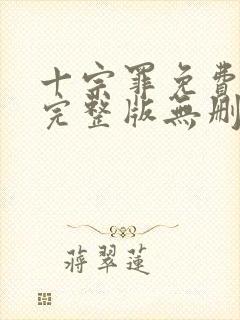 十宗罪免費
完整版無刪
蔣翠蓮